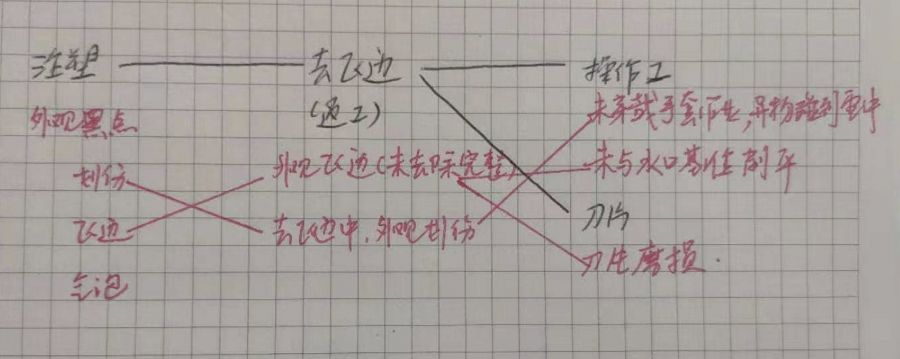 注塑 去飞边 操作工
(通工)
外观黑点 未穿戴手套作业,异物碰到重中
划伤 外观飞边(未去除完整) 未与水口基准削平
飞边 去飞边中,外观划伤 刀片
气泡 刀片磨损.